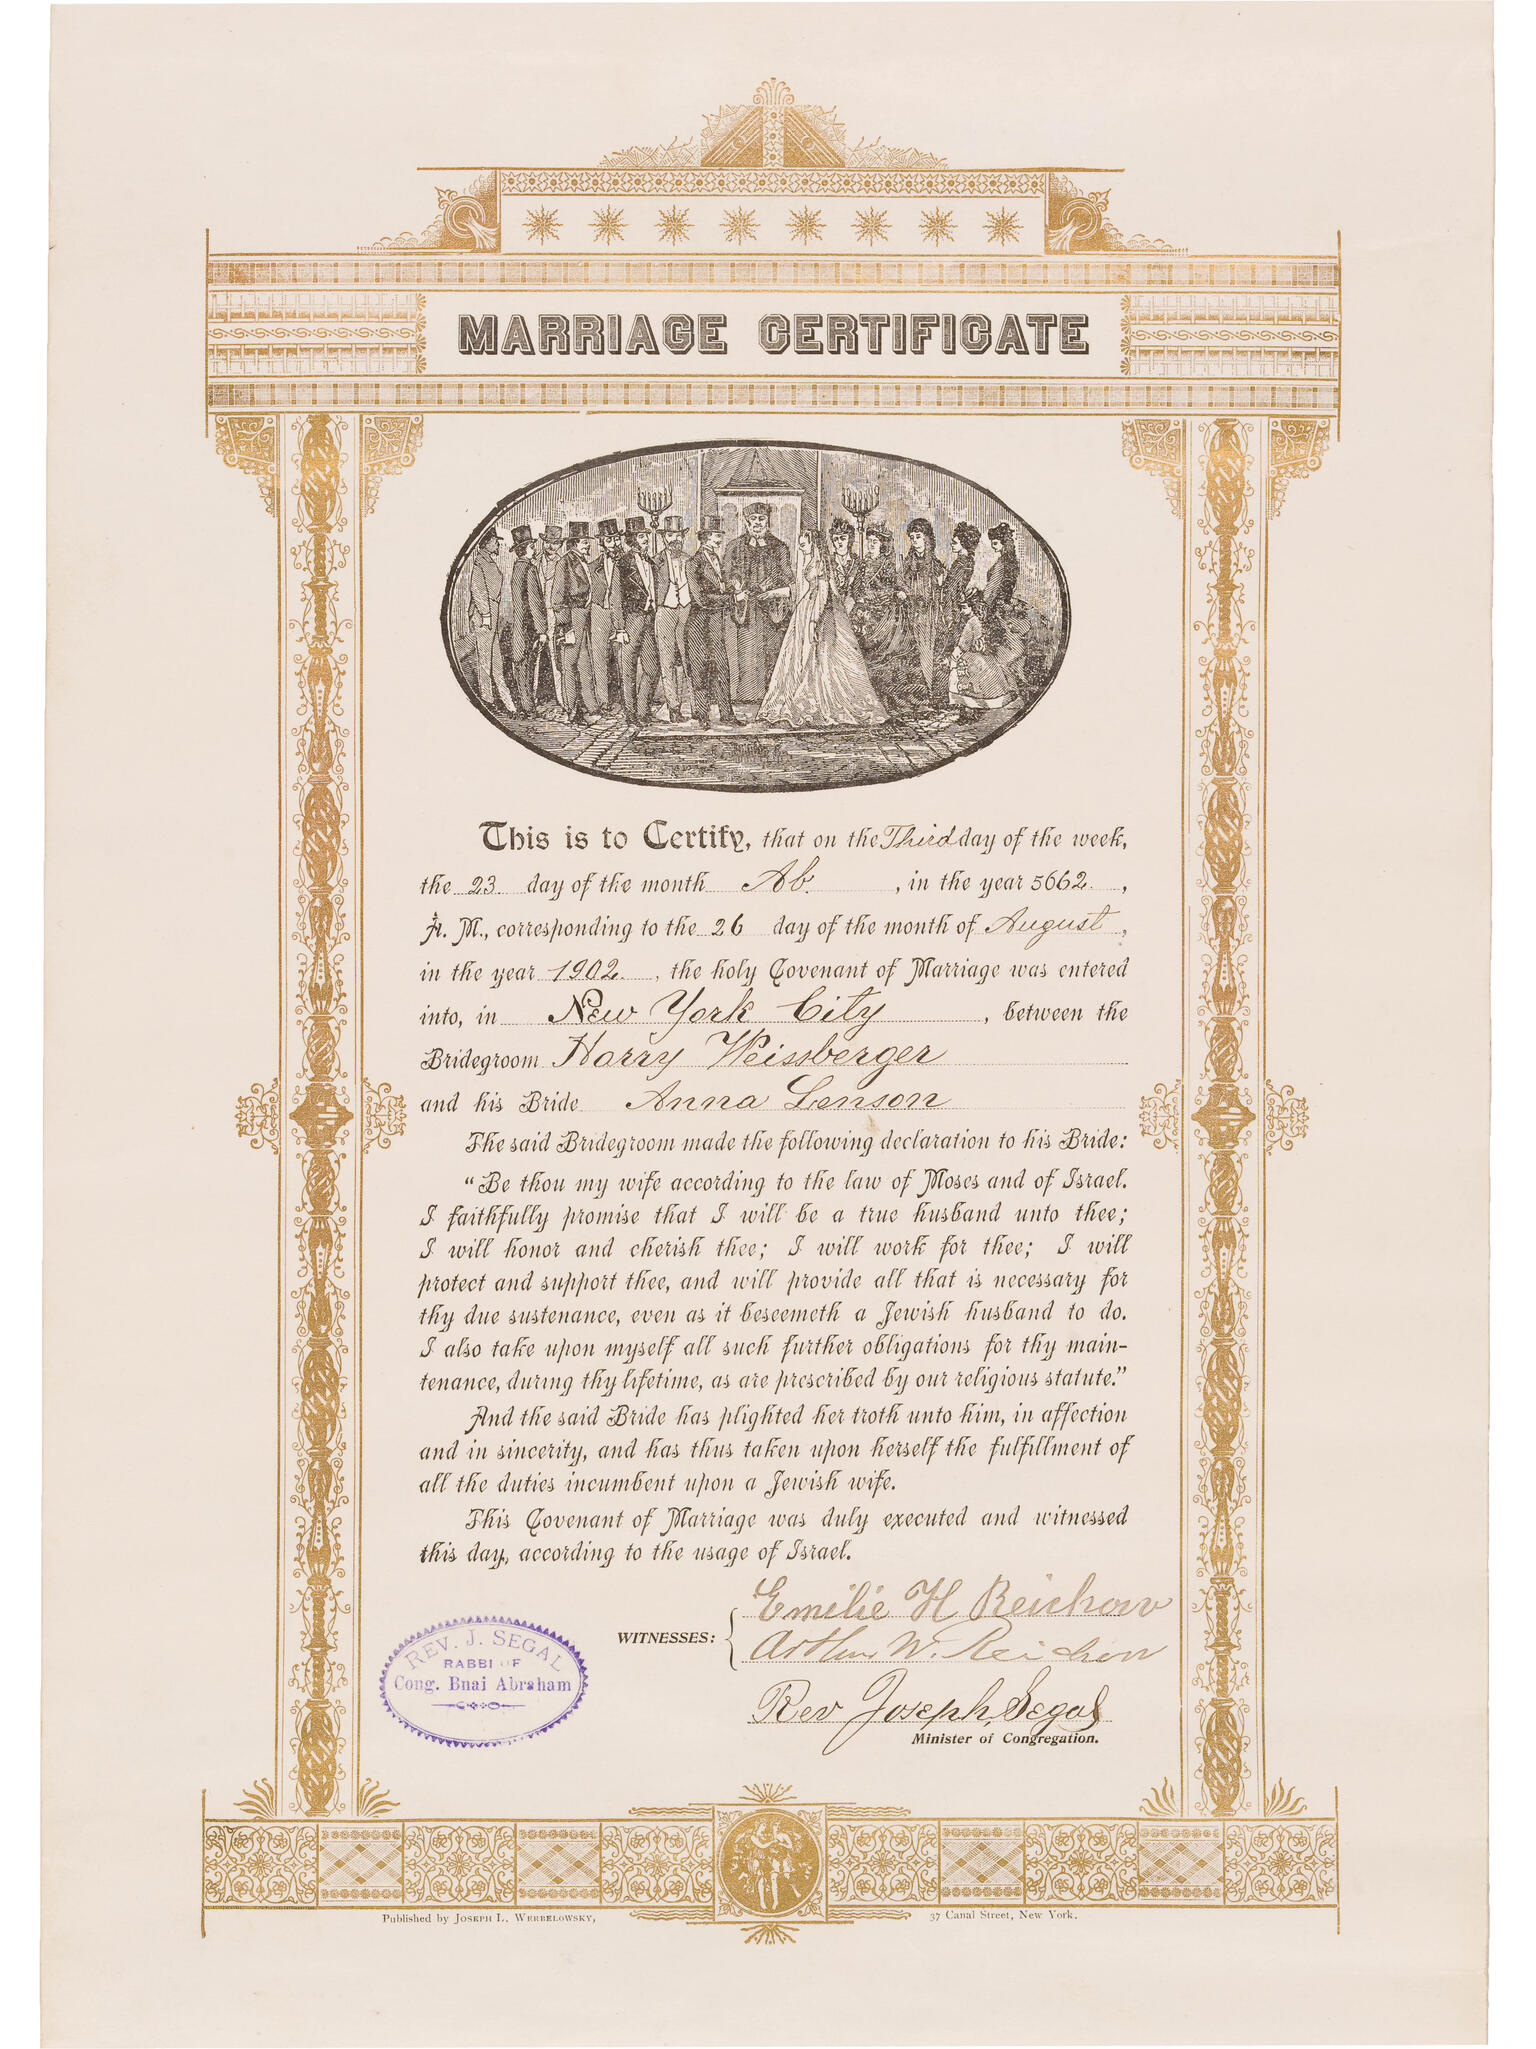 MARRIAGE CERTIFICATE
This is to Certify, that on the Third day of the week,
the 23 day of the month Ab. , in the year 5662. ,
A. M., corresponding to the 26 day of the month of August ,
in the year 1902. , the holy Covenant of Marriage was entered
into, in New York City , between the
Bridegroom Harry Weissberger
and his Bride Anna Lenson
The said Bridegroom made the following declaration to his Bride:
"Be thou my wife according to the law of Moses and of Israel.
I faithfully promise that I will be a true husband unto thee;
I will honor and cherish thee; I will work for thee; I will
protect and support thee, and will provide all that is necessary for
thy due sustenance, even as it beseemeth a Jewish husband to do.
I also take upon myself all such further obligations for thy main-
tenance, during thy lifetime, as are prescribed by our religious statute."
And the said Bride has plighted her troth unto him, in affection
and in sincerity, and has thus taken upon herself the fulfillment of
all the duties incumbent upon a Jewish wife.
This Covenant of Marriage was duly executed and witnessed
this day, according to the usage of Israel.
WITNESSES:
Emilie H Reichow
Arthur W. Reichow
Rev Joseph Segal
Minister of Congregation.
REV. J. SEGAL
RABBI OF
Cong. Bnai Abraham
Published by JOSEPH L. WERBELOWSKY, 37 Canal Street, New York.